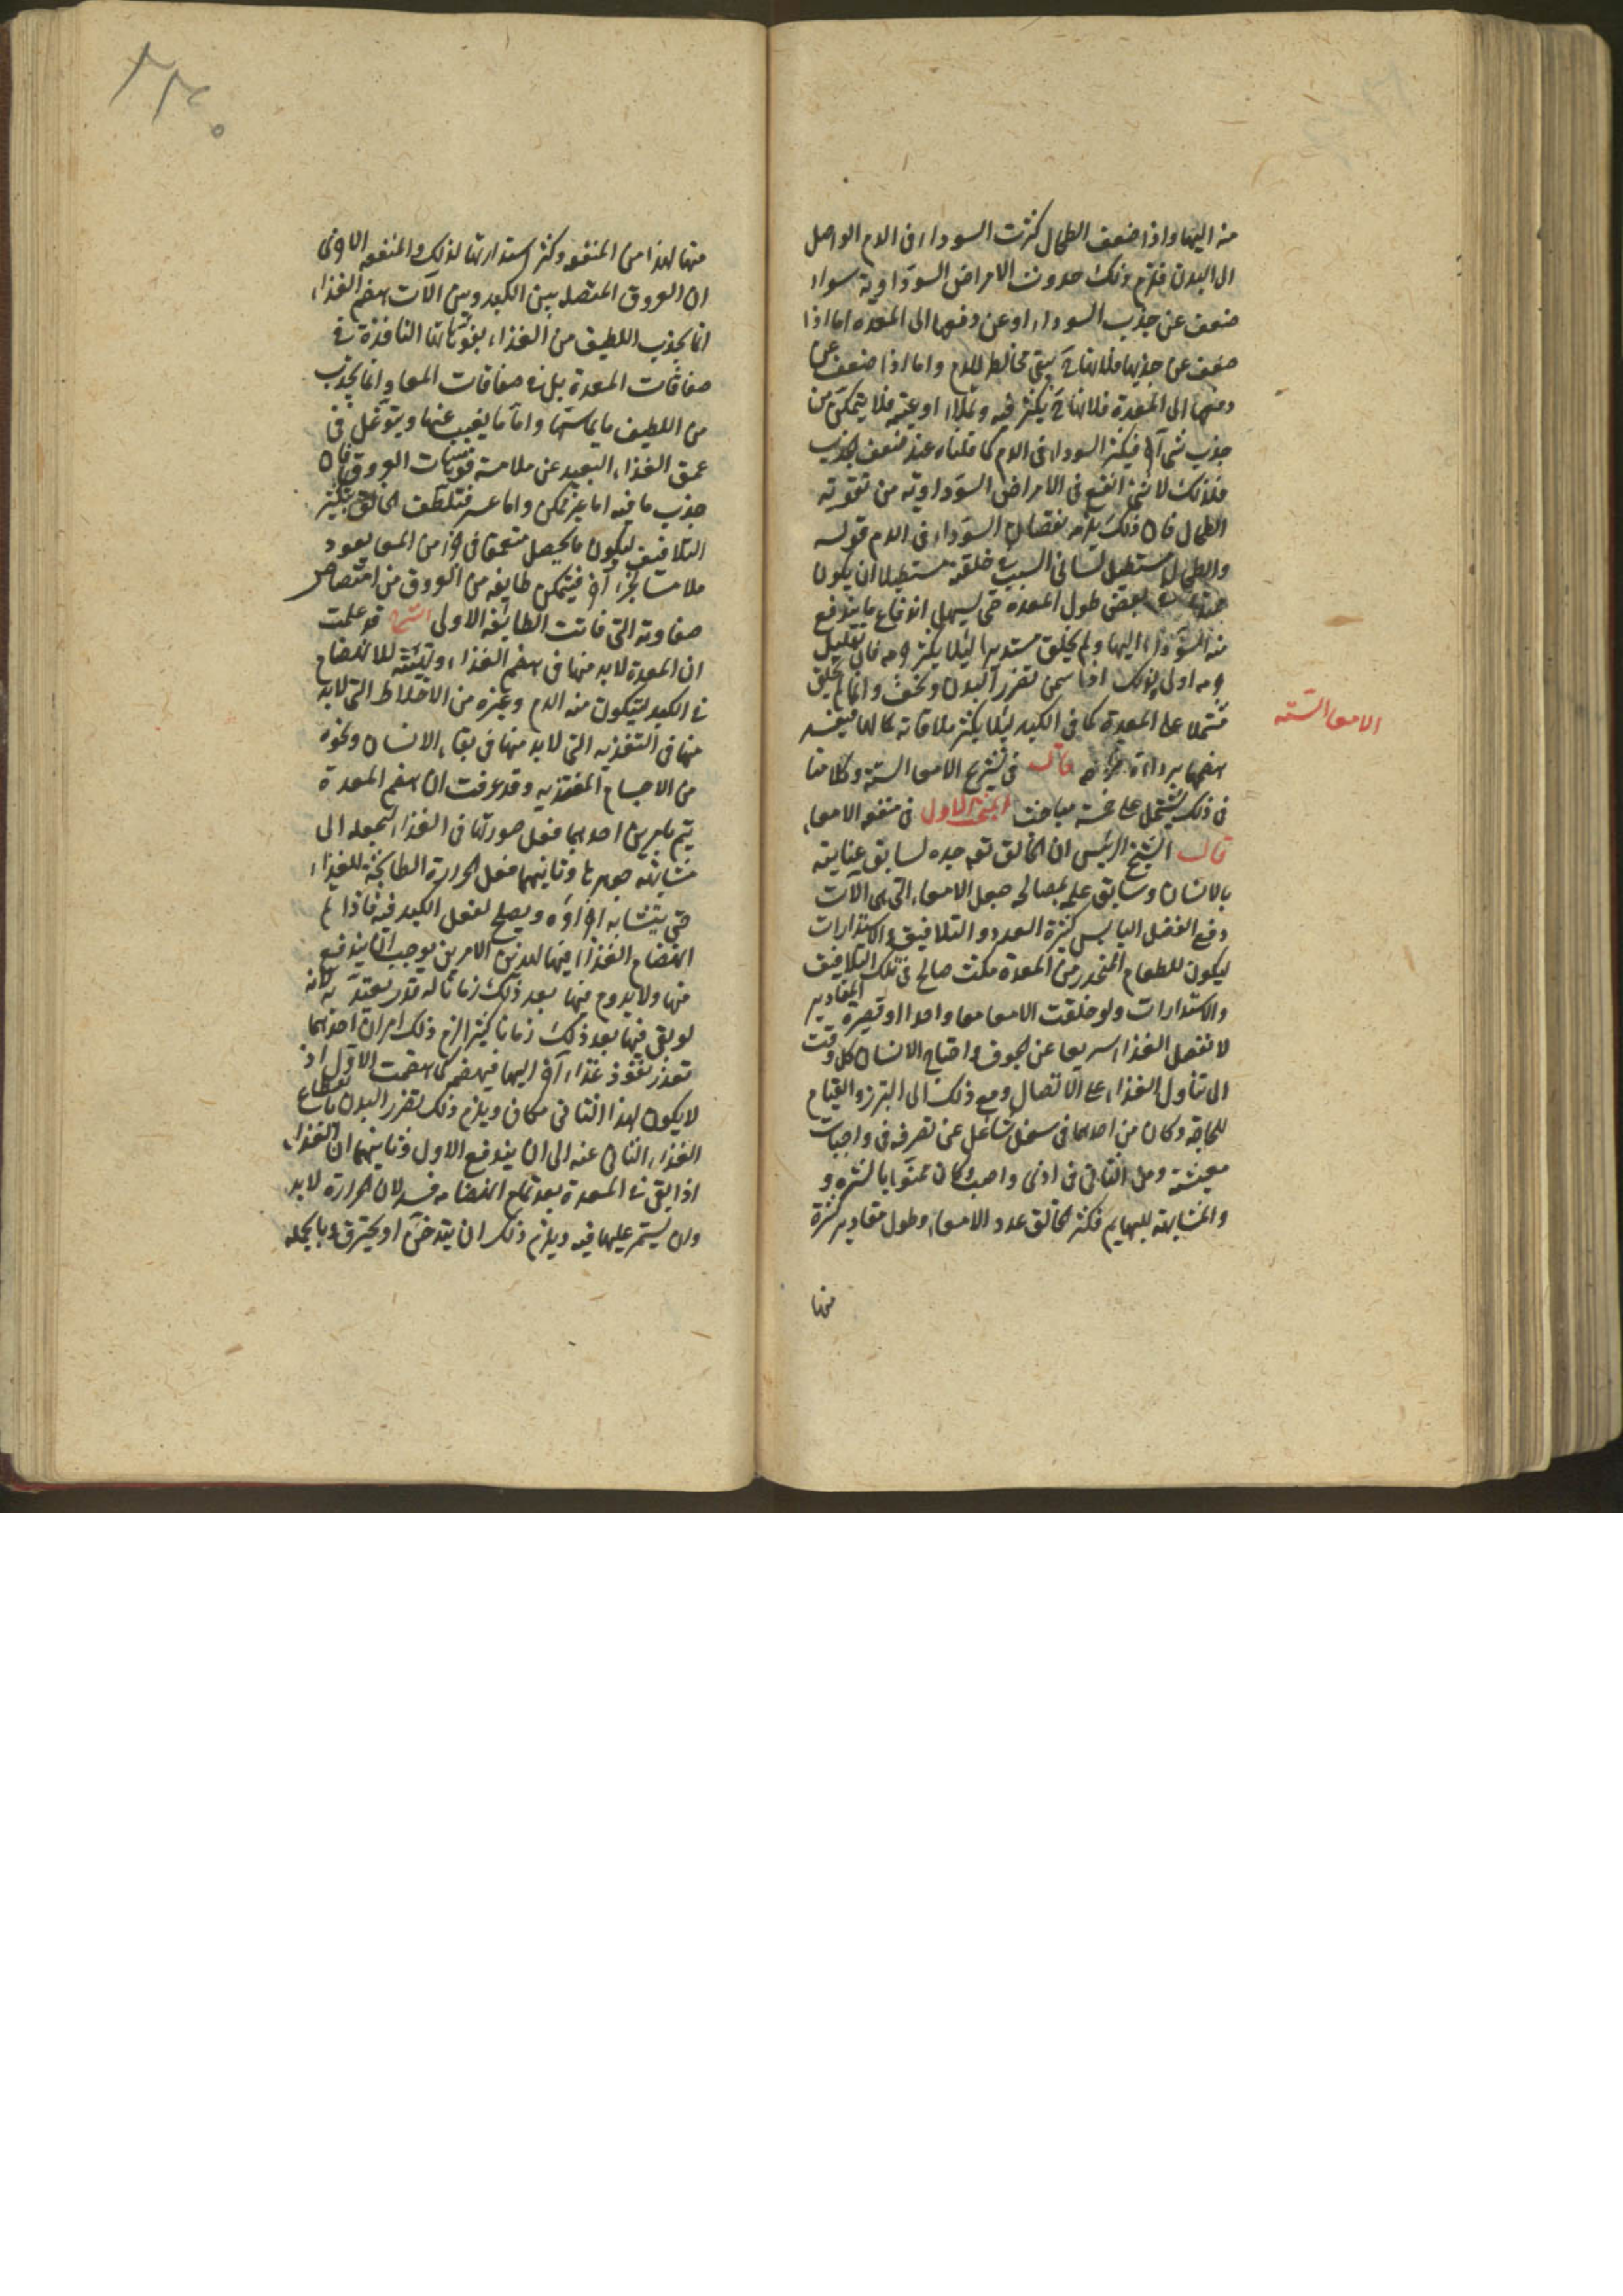 منه اليها واذا ضعف الطحال كثرت السوداء فى الدم الواصل
الى البدن فلزم ذلك حدوث الامراض السوداوية سواء
ضعف عن جذب السوداء او عن دفعها الى المعدة اما اذا
ضعف عن جذبها فلانها ح يبقى مخالط للدم واما اذا ضعف عن
دفعها الى المعدة فلانها ح يكثر فيه وتملأ اوعيته فلا يتمكن من
جذب شئ آخر فيكثر السوداء فى الدم كما قلناه عند ضعف الجذب
فلذلك لا شئ انفع فى الامراض السوداوية من تقوية
الطحال فان ذلك يلزمه نقصان السوداء فى الدم قوله
والطحال مستطيل لسانى السبب فى خلقته مستطيلا ان يكون
بعض طول المعدة حتى يسهل اندفاع ما يندفع
منه السوداء اليها ولم يخلق مستديرا ليلا يكثر جرمه فان تقليل
جرمه اولى ولذلك اذا سمن تضرر البدن ونحف وانما لم يخلق
مشتملا على المعدة كما فى الكبد ليلا يكثر ملاقاته لها فيفسد
هضمها ببرده قال فى تشريح الامعاء الستة وكلامنا
فى ذلك يشتمل على خمسة مباحث البحث الاول فى منفعة الامعاء
قال الشيخ الرئيس ان الخالق تعه جده لسابق عنايته
بالانسان وسابق علمه بمصالحه جعل الامعاء التى هى الآت
دفع الفضل اليابس كثيرة العدد والتلافيف والاستدارات
ليكون للطعام المنحدر من المعدة مكث صالح فى تلك التلافيف
والاستدارات ولو خلقت الامعا معا واحدا او قصيرة المقادير
لانفصل الغذاء سريعا عن الجوف واحتاج الانسان كل وقت
الى تناول الغذاء على الاتصال ومع ذلك الى التبرز والقيام
للحاجة وكان من احدهما فى شغل شاغل عن تصرفه فى واجبات
معيشته ومن الثانى فى اذى واصب وكان ممنوا بالشره و
والمشابهة للبهايم فكثر الخالق عدد الامعاء وطول مقادير كثيرة
منها
الامعا السته
منها لهذا من المنفعة وكثر استدارتها لذلك والمنفعة الاخرى
ان العروق المتصلة بين الكبد وبين الآت هضم الغذاء
انما يجذب اللطيف من الغذاء بفوهاتها النافذة فى
صفاقات المعدة بل فى صفاقات المعا وانما يجذب
من اللطيف ما يماسها واما ما يغيب عنها ويتوغل فى
عمق الغذاء البعيد عن ملامسة فوهات العروق فان
جذب ما فيه اما غير ممكن واما عسر فتلطف الخالق بتكثير
التلافيف ليكون ما يحصل متعمقا فى جزء من المعا يعود
ملامسا بجزء آخر فيتمكن طايفة من العروق من امتصاص
صفاوته التى فاتت الطايفة الاولى الشرح قد علمت
ان المعدة لابد منها فى هضم الغذاء وتهيئته للانهضام
فى الكبد ليتكون منه الدم وغيره من الاخلاط التى لابد
منها فى التغذيه التى لابد منها فى بقاء الانسان ونحوه
من الاجسام المغتذيه وقد عرفت ان هضم المعدة
يتم بامرين احدهما فعل صورتها فى الغذاء لتجعله الى
مشابهة جوهرها وثانيهما فعل الحرارة الطابخة للغذاء
حتى يتشابه اجزاؤه ويصلح لفعل الكبد فيه فاذا تم
انهضام الغذاء فيها لهذين الامرين يوجب ان يندفع
منها ولا يدوم فيها بعد ذلك زمانا له قدر يعتد به لانه
لو بقى فيها بعد ذلك زمانا كثيرا لزم ذلك امران احدهما
تعذر نفوذ غذاء آخر اليها فيهضمه كما هضمت الاول اذ
لا يكون لهذا الثانى مكان ويلزم ذلك تضرر البدن بانقطاع
الغذاء الثان عنه الى ان يندفع الاول وثانيهما ان الغذاء
اذا بقى فى المعدة بعد تمام انهضامه فسد لان الحرارة لابد
وان يستمر عليها فيه ويلزم ذلك ان يتدخن او يحترق وبالجملة